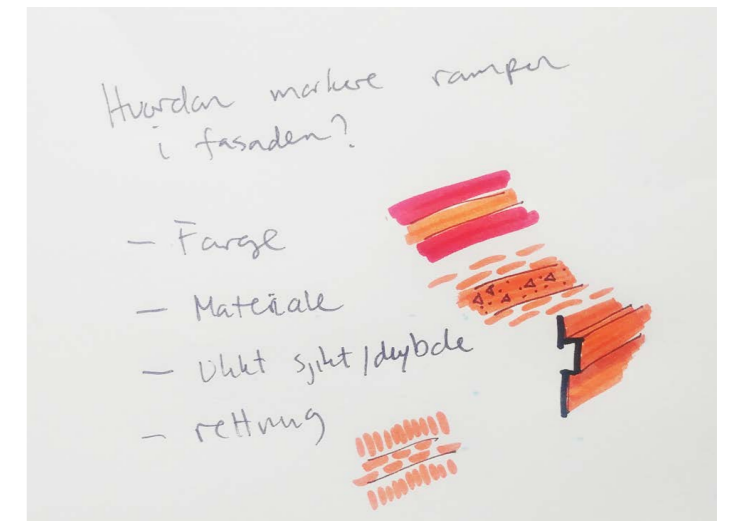 Hvordan markere rampen
i fasaden?
- Farge
- Materiale
- Ulikt sjikt/dybde
- retning